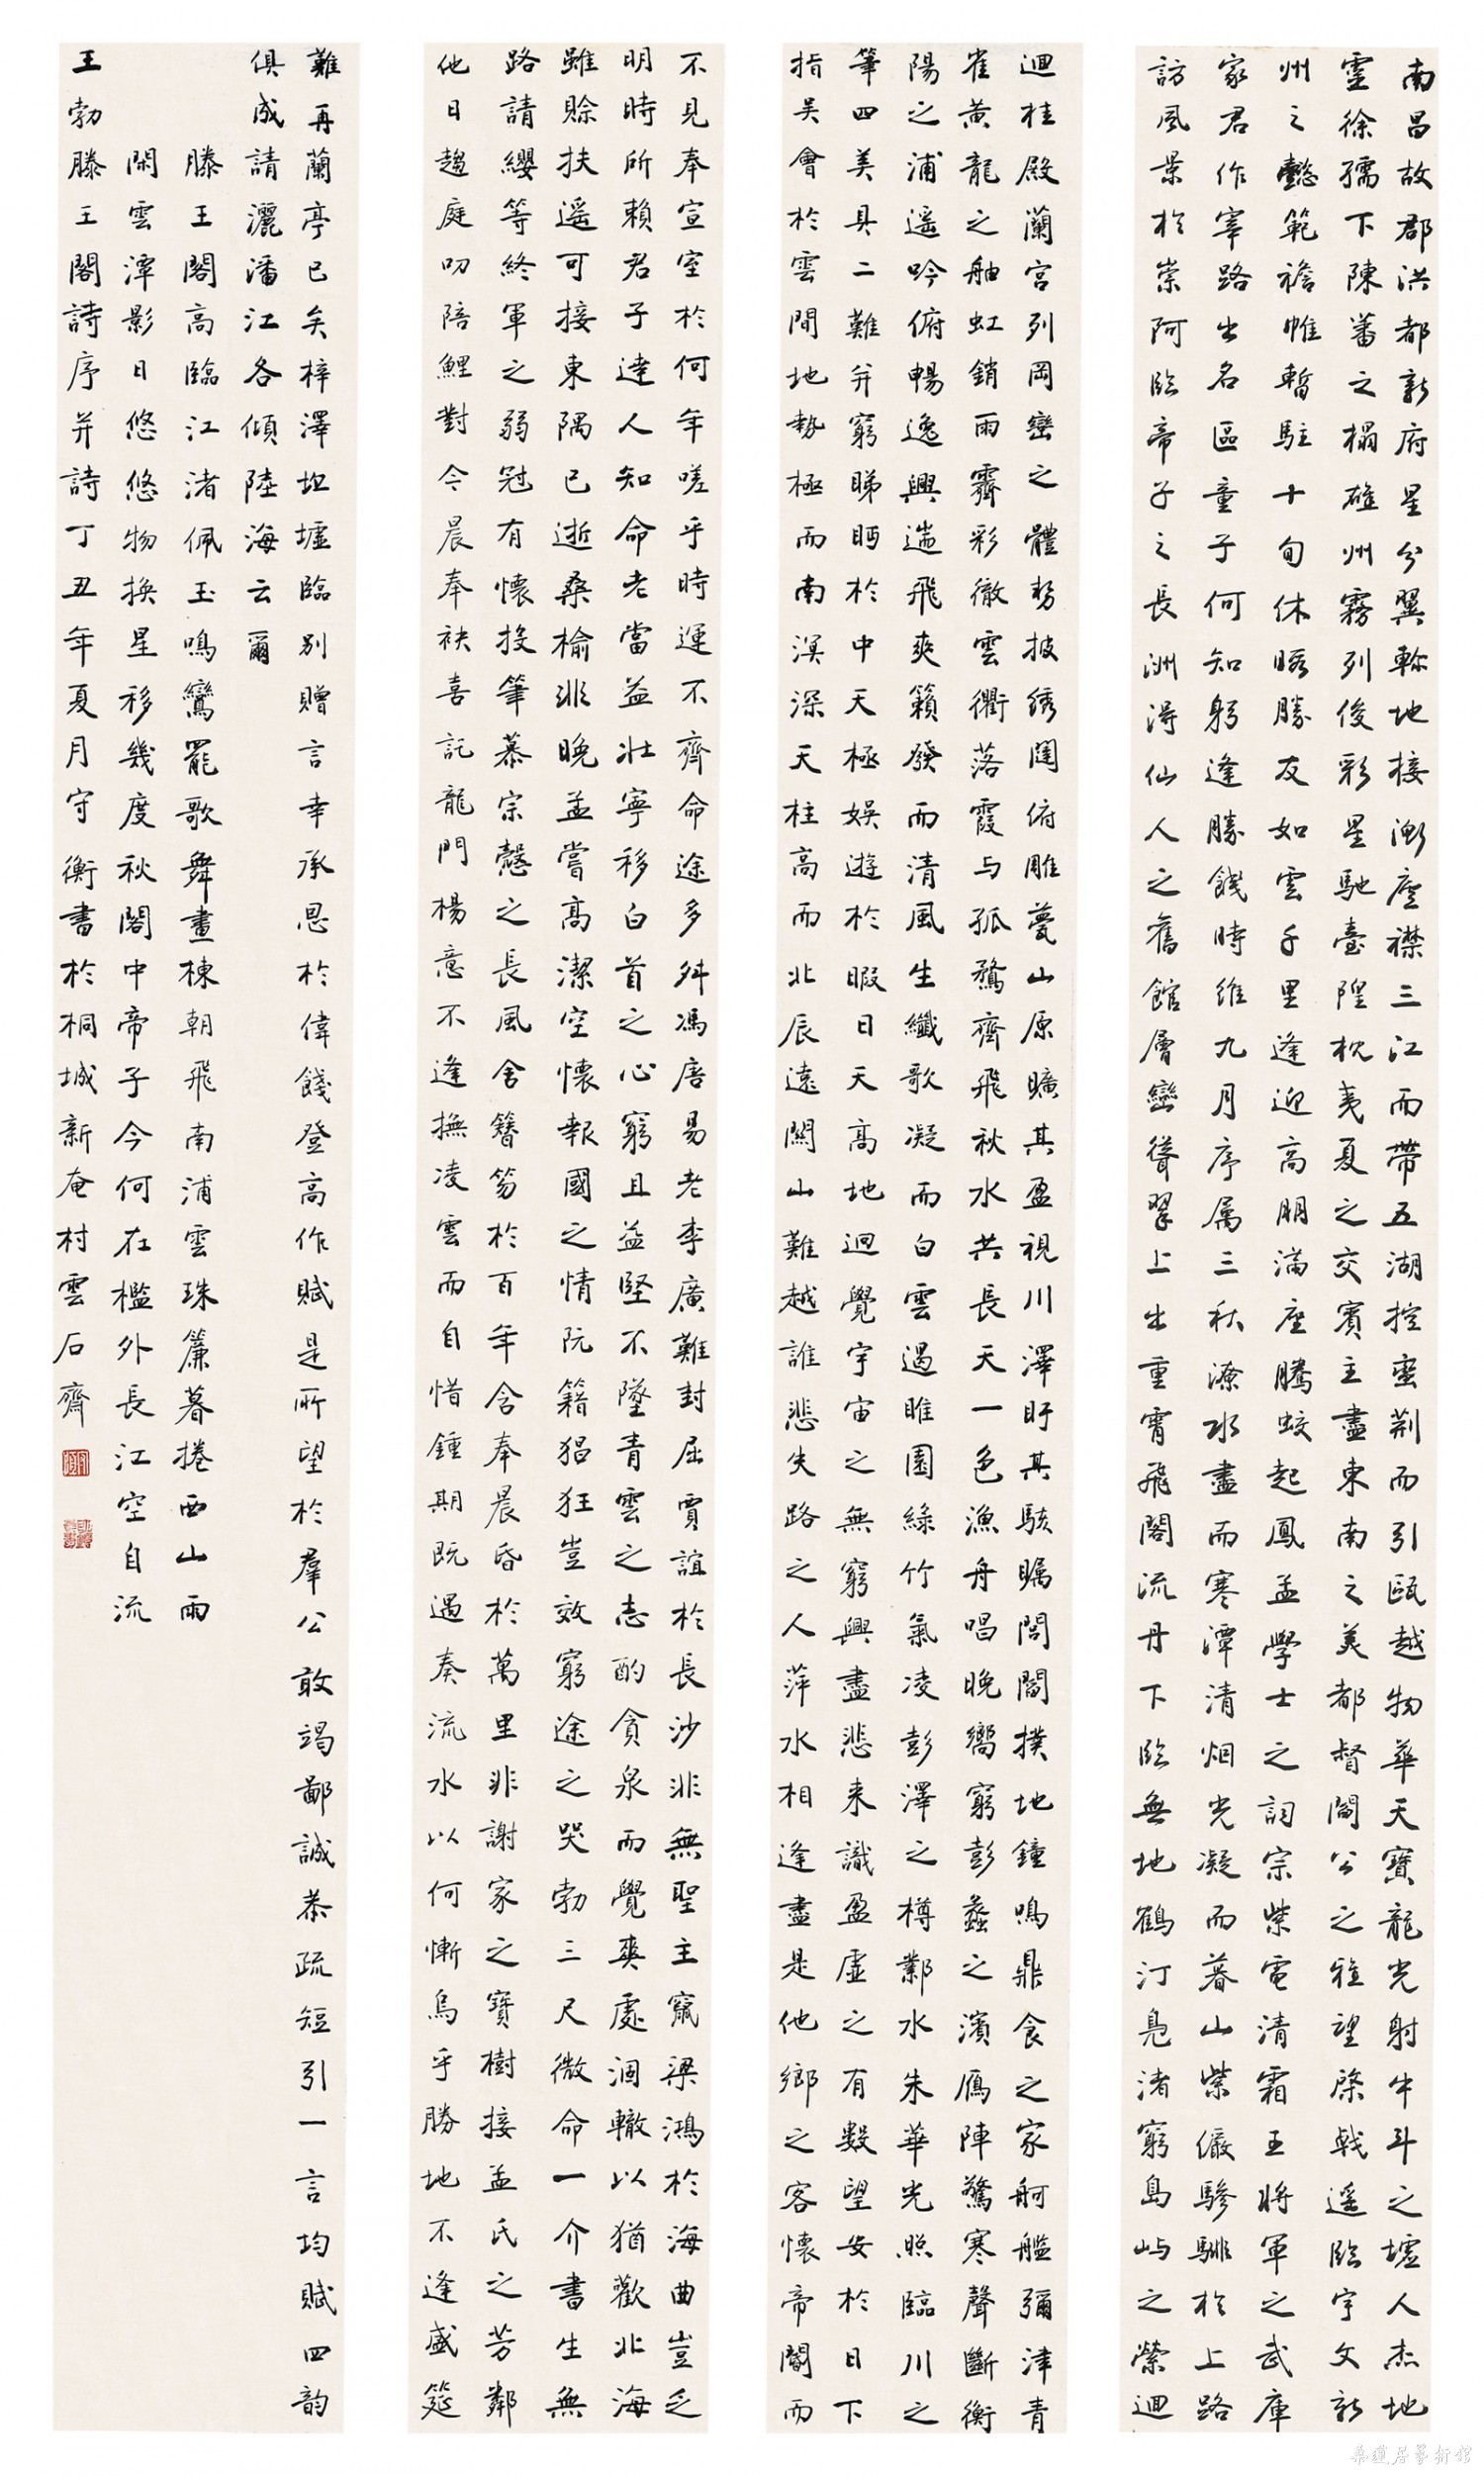 南昌故郡洪都新府星分翼軫地接衡廬襟三江而帶五湖控蠻荆而引甌越物華天寶龍光射牛斗之墟人杰地
靈徐孺下陳蕃之榻雄州霧列俊彩星馳臺隍枕夷夏之交賓主盡東南之美都督閻公之雅望棨戟遥臨宇文新
州之懿範襜帷暫駐十旬休暇勝友如雲千里逢迎高朋滿座騰蛟起鳳孟學士之詞宗紫電清霜王將軍之武庫
家君作宰路出名區童子何知躬逢勝餞時維九月序属三秋潦水盡而寒潭清烟光凝而暮山紫儼驂騑於上路
訪風景於崇阿臨帝子之長洲得仙人之舊館層巒聳翠上出重霄飛閣流丹下臨無地鶴汀鳧渚窮島嶼之縈迴
迴桂殿蘭宮列岡巒之體勢披綉闥俯雕甍山原曠其盈視川澤盱其駭矚閭閻撲地鐘鳴鼎食之家舸艦彌津青
雀黄龍之舳虹銷雨霽彩徹雲衢落霞与孤鶩齊飛秋水共長天一色漁舟唱晚響窮彭蠡之濱雁陣驚寒聲斷衡
陽之浦遥吟俯暢逸興遄飛爽籟發而清風生纖歌凝而白雲遏睢園緑竹氣凌彭澤之樽鄴水朱華光照臨川之
筆四美具二難并窮睇眄於中天極娛遊於暇日天高地迴覺宇宙之無窮興盡悲来識盈虚之有數望安於日下
指吴會於雲間地勢極而南溟深天柱高而北辰遠關山難越誰悲失路之人萍水相逢盡是他鄉之客懷帝閽而
不見奉宣室於何年嗟乎時運不齊命途多舛馮唐易老李廣難封屈賈誼於長沙非無聖主竄梁鴻於海曲豈乏
明時所賴君子達人知命老當益壯寧移白首之心窮且益堅不墜青雲之志酌貪泉而覺爽處涸轍以猶歡北海
雖賒扶遥可接東隅已逝桑榆非晚孟嘗高潔空懷報國之情阮籍猖狂豈效窮途之哭勃三尺微命一介書生無
路請纓等終軍之弱冠有懷投筆慕宗慤之長風舍簪笏於百年含奉晨昏於萬里非謝家之寶樹接孟氏之芳鄰
他日趨庭叨陪鯉對今晨奉袂喜託龍門楊意不逢撫凌雲而自惜鍾期既遇奏流水以何慚烏乎勝地不逢盛筵
難再蘭亭已矣梓澤坵墟臨别贈言幸承恩於偉餞登高作賦是所望於羣公敢竭鄙誠恭疏短引一言均賦四韵
俱成請灑潘江各傾陸海云爾
滕王閣高臨江渚佩玉鳴鸞罷歌舞畫棟朝飛南浦雲珠簾暮捲西山雨
閑雲潭影日悠悠物換星移幾度秋閣中帝子今何在檻外長江空自流
王勃滕王閣詩序并詩丁丑年夏月守衡書於桐城新奄村雲石齊